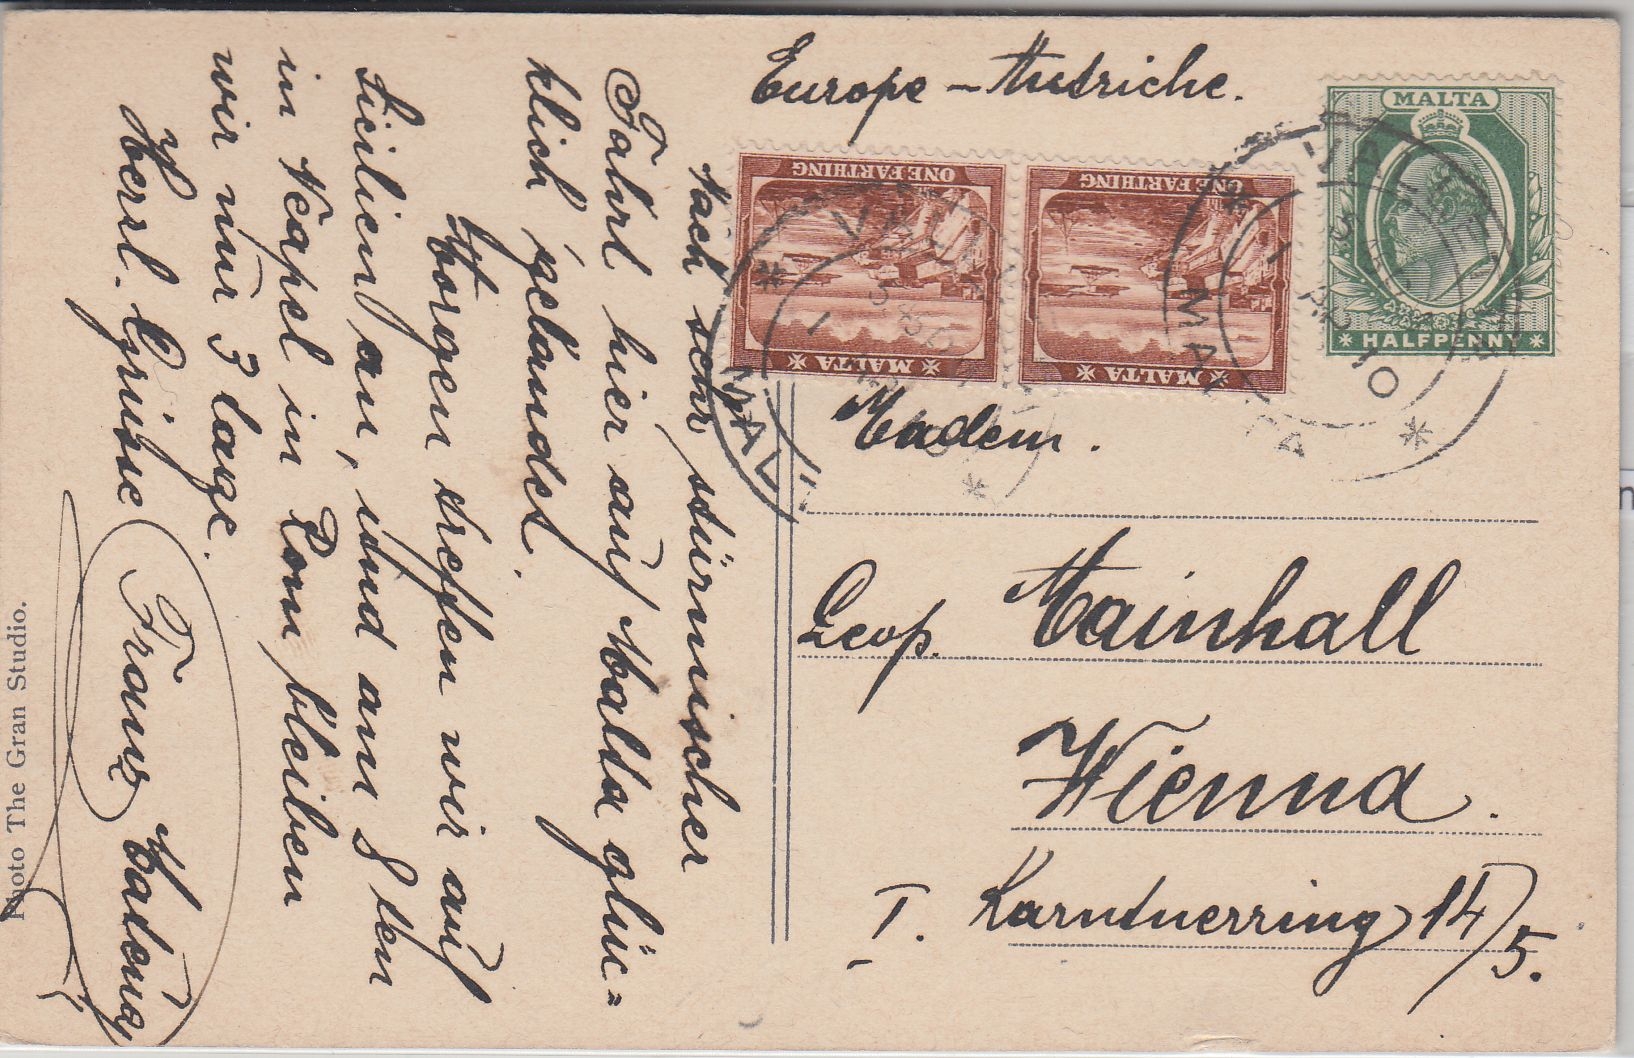 Europe – Autriche.
MALTA
HALFPENNY
ONE FARTHING
MALTA
ONE FARTHING
MALTA
VALLETTA
MALTA
10
Madem.
Leop. Mainhall
Wienna.
I. Karntnerring 14/5.
Nach sehr stürmischer
Fahrt hier auf Malta glüc=
klich gelandet.
Morgen treffen wir auf
Sicilien an, und am 8ten
in Neapel in Rom bleiben
wir nur 3 tage.
Herzl. Grüsse
Franz
Photo The Gran Studio.